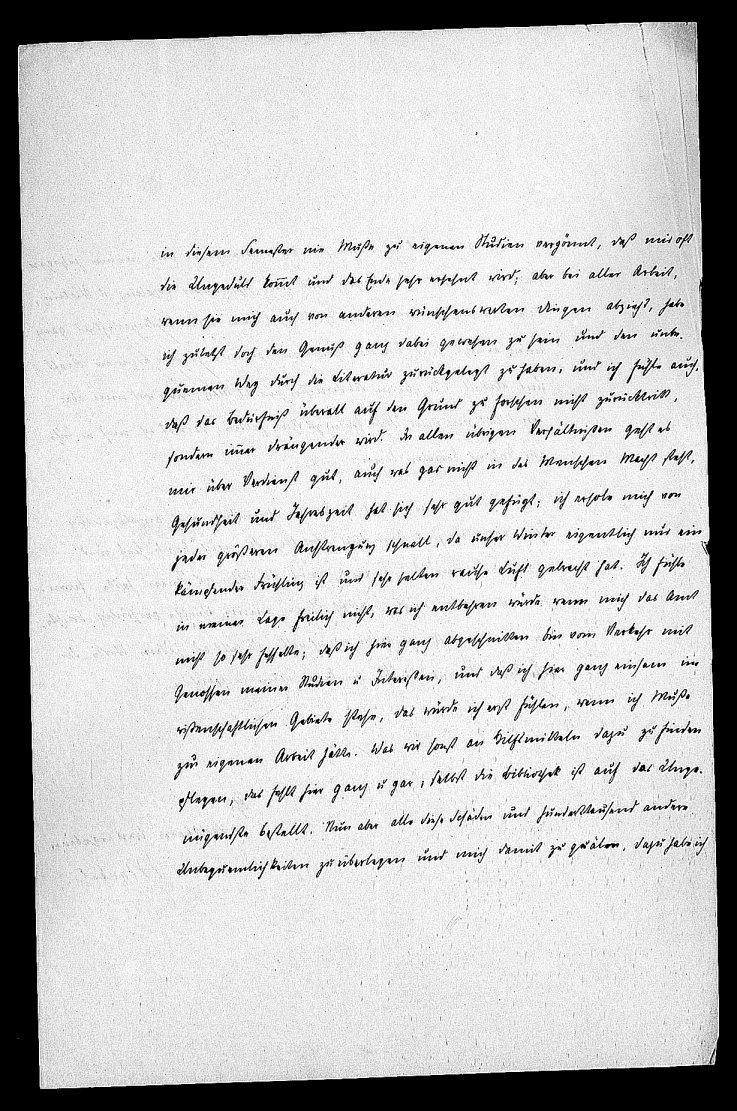 in diesem Semester nie Muße zu eigenen Studien vergönnt, daß mir oft
die Ungeduld kom̅t und das Ende sehr ersehnt wird; aber bei aller Arbeit,
wenn sie mich auch von anderen wünschenswerten Dingen abzieht, habe
ich zuletzt doch den Genuß ganz dabei gewesen zu sein und den unbe-
quemen Weg durch die Literatur zurückgelegt zu haben; und ich fühle auch,
daß das Bedürfniß überall auf den Grund zu forschen nicht zurücktritt,
sondern im̅er drängender wird. In allen übrigen Verhältnissen geht es
mir über Verdienst gut, auch was gar nicht in des Menschen Macht steht,
Gesundheit und Jahreszeit hat sich sehr gut gefügt; ich erhole mich von
jeder größeren Anstrengung schnell, da unser Winter eigentlich nur ein
kämpfender Frühling ist und sehr selten rauhe Luft gebracht hat. Ich fühle
in meiner Lage freilich nicht, was ich entbehren würde, wenn mich das Amt
nicht so sehr fesselte; daß ich hier ganz abgeschnitten bin vom Verkehr mit
Genossen meiner Studien u Interessen, und daß ich hier ganz einsam im
wissenschaftlichen Gebiete stehe, das würde ich erst fühlen, wenn ich Muße
zur eigenen Arbeit hätte. Was wir sonst an Hilfsmitteln dazu zu finden
pflegen, das fehlt hier ganz u gar; selbst die Bibliothek ist auf das Unge-
nügendste bestellt. Nun aber alle diese Schäden und hunderttausend andere
Unbequemlichkeiten zu überlegen und mich damit zu quälen, dazu habe ich